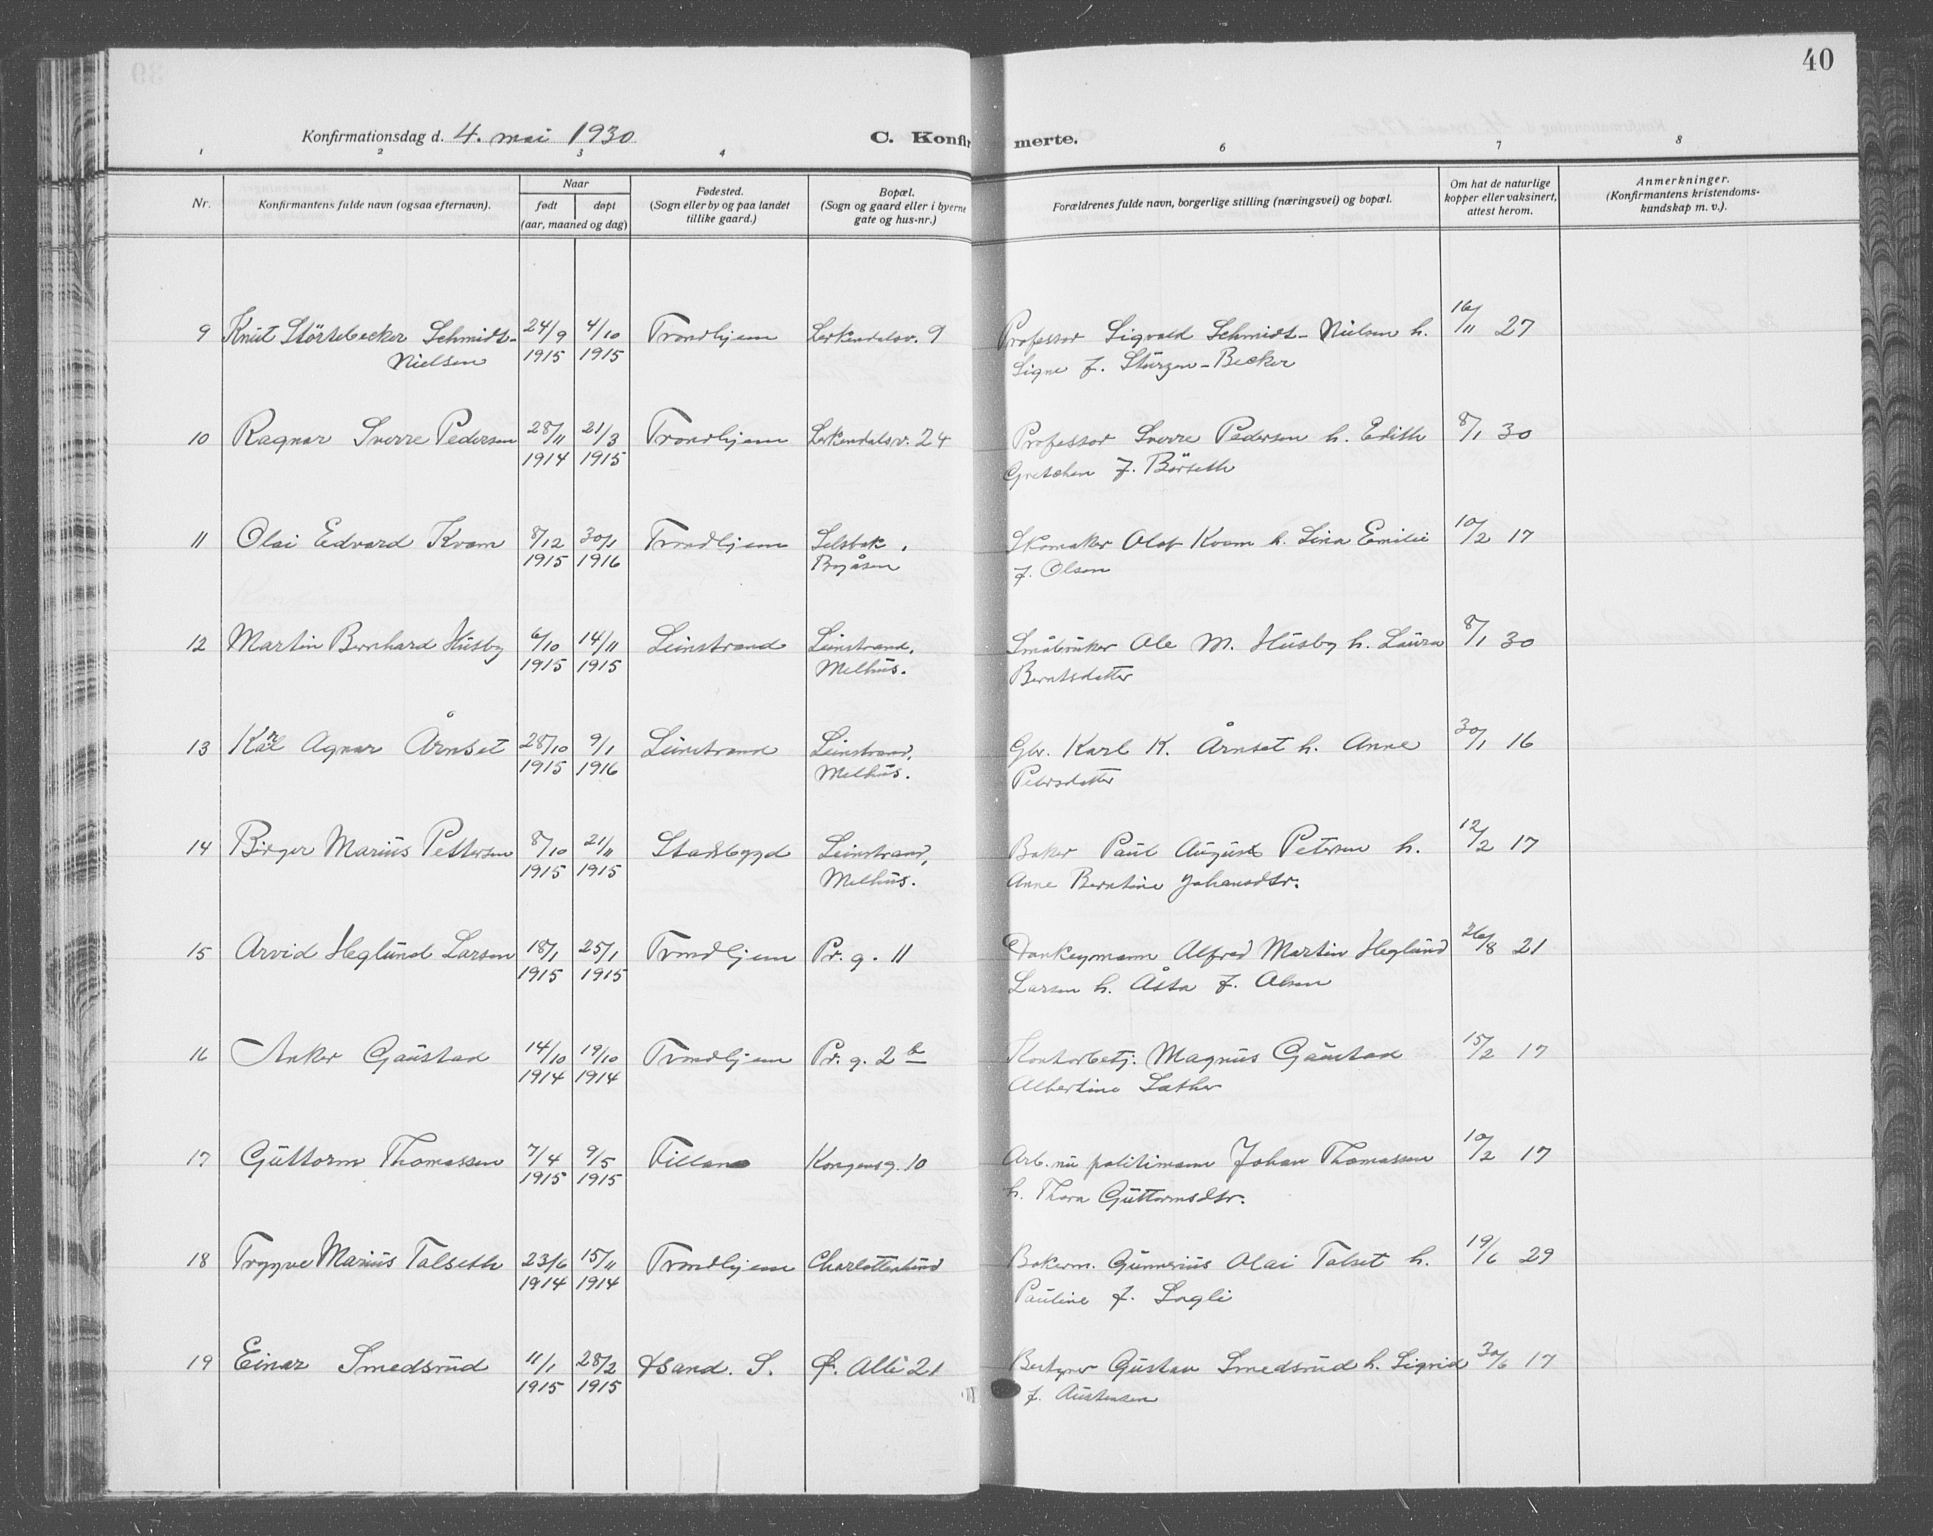 40
Konfirmationsdag d. 4. mai 1930
C. Konfir merte.
1 2 3 4 6 7 8
Nr.
Konfirmantens fulde navn (ogsaa efternavn).
Naar
født døpt
(aar, maaned og dag)
Fødested.
(Sogn eller by og paa landet
tillike gaard.)
Bopæl.
(Sogn og gaard eller i byerne
gate og hus-nr.)
Forældrenes fulde navn, borgerlige stilling (næringsvei) og bopæl.
Om hat de naturlige
kopper eller vaksinert,
attest herom.
Anmerkninger.
(Konfirmantens kristendoms-
kundskap m. v.).
9 Knut Störtebecker Schmidt- 24/9 4/10 Trondhjem Lerkendalsv. 9 Professor Sigvald Schmidt-Nielsen h. 16/11 27
Nielsen 1915 1915 Signe f. Stürzen-Becker
10 Ragnar Sverre Pedersen 28/11 21/3 Trondhjem Lerkendalsv. 24 Professor Sverre Pedersen h. Edith 8/1 30
1914 1915 Gretchen f. Börseth
11 Olai Edvard Kvam 8/12 30/1 Trondhjem Selsbak, Skomaker Olaf Kvam h. Lina Emilie 10/2 17
1915 1916 Byåsen f. Olsen
12 Martin Bernhard Husby 6/10 14/11 Leinstrand Leinstrand, Småbruker Ole M. Husby h. Laura 8/1 30
1915 1915 Melhus. Berntsdatter
13 Karl Agnar Årnset 28/10 9/1 Leinstrand Leinstrand, Gbr. Karl K. Årnset h. Anne 30/1 16
1915 1916 Melhus. Petersdatter
14 Birger Marius Pettersen 8/10 21/11 Stadsbygd Leinstrand, Baker Paul August Petersen h. 12/2 17
1915 1915 Melhus. Anne Berntine Johansdtr.
15 Arvid Heglund Larsen 18/1 25/1 Trondhjem Pr. g. 11 Donkeymann Alfred Martin Heglund 26/8 21
1915 1915 Larsen h. Åsta f. Olsen
16 Anker Gaustad 14/10 19/10 Trondhjem Pr. g. 2 b Kontorbetj. Magnus Gaustad 15/2 17
1914 1914 Albertine Sæther
17 Guttorm Thomassen 7/4 9/5 Fillan Kongensg. 10 Arb. nu politimann Johan Thomassen 10/2 17
1915 1915 h. Thora Guttormsdtr.
18 Trygve Marius Talseth 23/6 15/11 Trondhjem Charlottenlund Bakerm. Gunnerius Olai Talset h. 19/6 29
1914 1914 Pauline f. Sogli
19 Einar Smedsrud 11/1 28/2 Åsand. S. Ø. Alle 21 Bestyrer Gustav Smedsrud h. Sigrid 30/6 17
1915 1915 f. Austensen